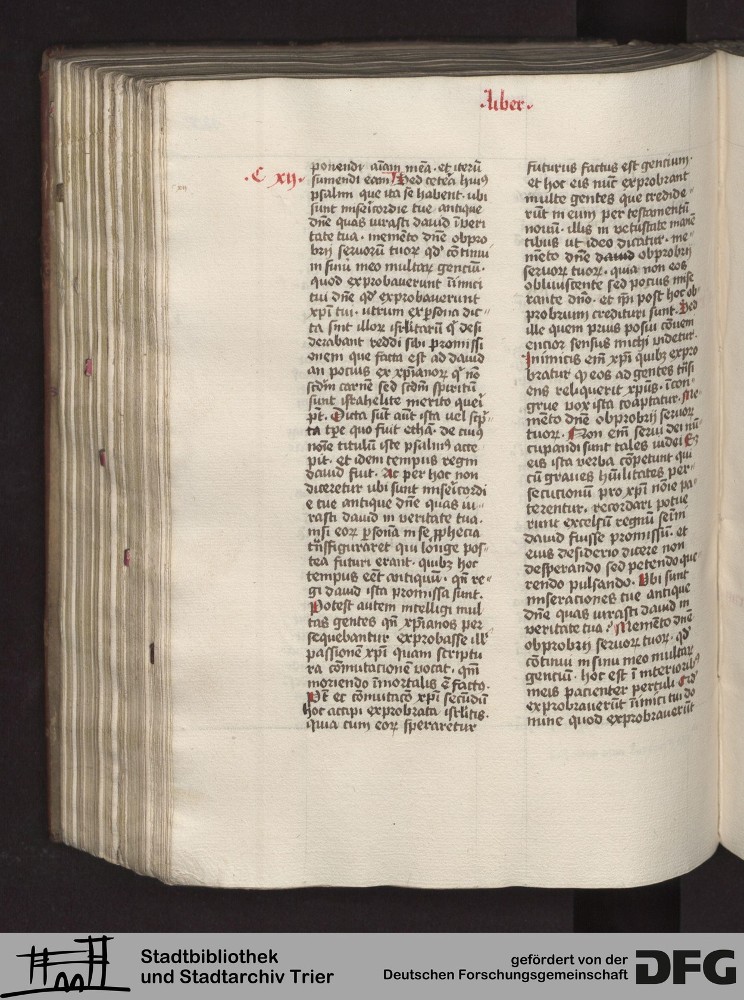 .Liber.
.C xij.
xij
ponendi aīam meā. et iterū
sumendi eam Sed cetera huiꝰ
psalmi que ita se habent. ubi
sunt misericordie tue antique
dn̄e quas iurasti dauid ī veri
tate tua. memēto dn̄e obpro
brij seruorū tuoꝝ qd̓ cōtinui
in sinu meo multaꝝ genciū.
quod exprobauerunt inimici
tui dn̄e qd̓ exprobauerunt
xp̄i tui. utrum ex persona dic
ta sint illoꝝ isrl̄itarū qͥ desi
derabant reddi sibi promissi
onem que facta est ad dauid
an pocius ex xp̄ianoꝝ qͥ nō
scd̄m carnē sed scd̄m spiritū
sunt israhelite merito queri
pt̄. Dicta sūt aūt ista uel scpͭ
ta tp̄e quo fuit ethā. de cuiꝰ
noīe titulū iste psalmꝰ acce
pit. et idem tempus regni
dauid fuit. Ac per hoc non
diceretur ubi sunt misericordi
e tue antique dn̄e quas iu-
rasti dauid in veritate tua.
nisi eoꝝ ꝑsonā in se ꝓphecia
trāsfiguraret qui lōge pos-
tea futuri erant. quibꝫ hoc
tempus eēt antiquū. qn̄ re-
gi dauid ista promissa sunt.
Potest autem intelligi mul
tas gentes qn̄ xp̄ianos per
sequebantur exprobasse illꝭ
passionē xp̄i quam scriptu
ra cōmutacionē vocat. qm̄
moriendo īmortalis ē factꝰ.
Pt̄ et cōmutacō xp̄i secūdū
hoc accipi exprobata isrl̄itis.
quia cum eoꝝ speraretur
futurus factus est gencium.
et hoc eis nūc exprobrant
multe gentes que credide-
rūt in eum per testamentū
nouū. illis in vetustate manē
tibus ut ideo dicatur. me-
mēto dn̄e dauid obprobrij
seruoꝝ tuoꝝ. quia non eos
obliuiscente sed pocius mise
rante dn̄o. et ip̄i post hoc ob
probrium credituri sunt. Sed
ille quem prius posui cōuen
encior sensus michi videtur.
Inimicis em̄ xp̄i quibꝫ expro
bratur qͩ eos ad gentes trāsi
ens reliquerit xp̄us. incon-
grue vox ista coaptatur. Me-
mēto dn̄e obprobrij seruoꝝ
tuoꝝ. Non em̄ serui dei nū
cupandi sunt tales iudei Sꝫ
eis ista verba cōpetunt qui
cū graues hūilitates per-
secutionū pro xp̄i noīe pa-
terentur. recordari potue
runt excelsū regnū semī
dauid fuisse promissū. et
eius desiderio dicere non
desperando sed petendo que-
rendo pulsando. Ubi sunt
miseraciones tue antique
dn̄e quas iurasti dauid in
veritate tua? Memēto dn̄e
obprobrij seruoꝝ tuoꝝ. qd̓
cōtinui in sinu meo multaꝝ
genciū. hoc est ī interioribꝰ
meis pacienter pertuli Qd̓
exprobrauerūt inimici tui do
mine quod exprobrauerūt
Stadtbibliothek
und Stadtarchiv Trier
gefördert von der
Deutschen Forschungsgemeinschaft
DFG